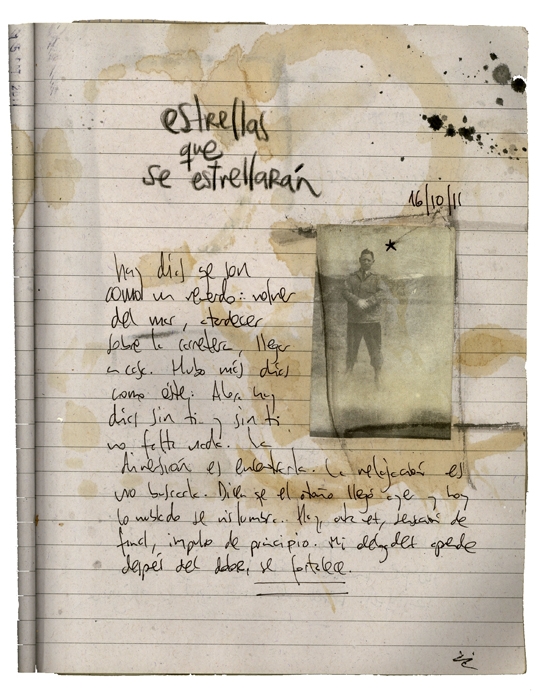 estrellas
que
se estrellarán
16/10/11
hay días que son
como un recuerdo: volver
del mar, atardecer
sobre la carretera, llegar
a casa. Hubo más días
como éste. Ahora hay
días sin ti y sin ti
no falta nada. La
diversión es encontrarla. La relajación es
no buscarla. Dicen que el otoño llegó ayer y hoy
lo nublado se vislumbra. Hay de
final, impulso de principio. Mi aprende
después del dolor, se fortalece.